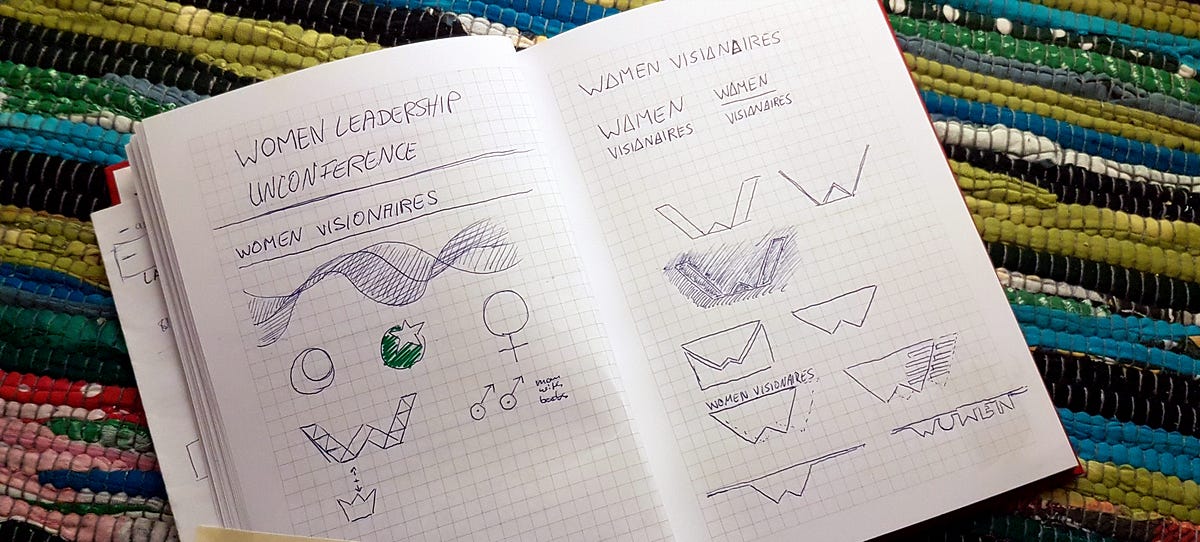 WOMEN LEADERSHIP
UNCONFERENCE
WOMEN VISIONAIRES
man
with
boobs
WOMEN VISIONAIRES
WOMEN
VISIONAIRES
WOMEN
VISIONAIRES
WOMEN VISIONAIRES
WUWEN